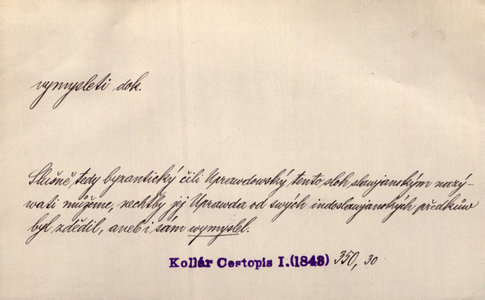 vymysleti dok.
Slušně tedy byzantický čili Uprawdowský tento sloh slawjanským nazý-
wati můžeme, nechťby jej Uprawda od swých indoslawjanských předkůw
byl zdědil, aneb i sám wymyslel.
Kollár Cestopis I. (1843) 350, 30